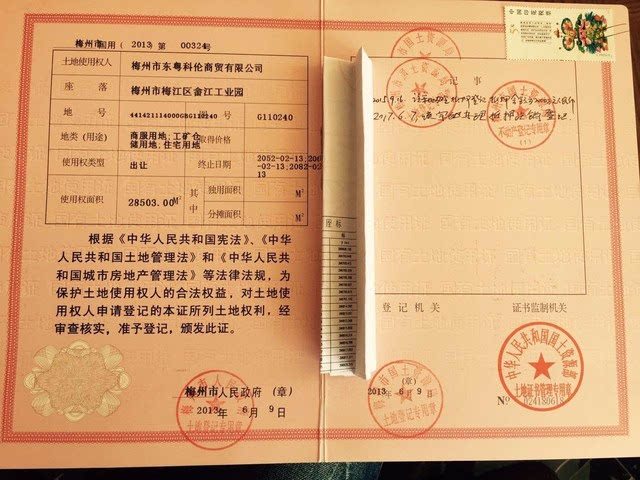 梅州市国用(2013)第00324号
土地使用权人 梅州市东粤科伦商贸有限公司
座落 梅州市梅江区畲江工业园
地号 441421114000GBG110240 图号 G110240
地类(用途) 商服用地;工矿仓储用地;住宅用地 取得价格
使用权类型 出让 终止日期 2052-02-13,206
-02-13,2082-02
13
使用权面积 28503.00 M² 其中 独用面积 M²
分摊面积 M²
根据《中华人民共和国宪法》、《中华
人民共和国土地管理法》和《中华人民共
和国城市房地产管理法》等法律法规,为
保护土地使用权人的合法权益,对土地使
用权人申请登记的本证所列土地权利,经
审查核实,准予登记,颁发此证。
梅州市人民政府(章)
2013年6月9日
土地登记专用章
中国印花税票
记事
不动产登记专用章
座标
登记机关
证书监制机关
(章)
2013年6月9日
土地登记专用章
中华人民共和国国土资源部
土地证书管理专用章
Nº 024180618